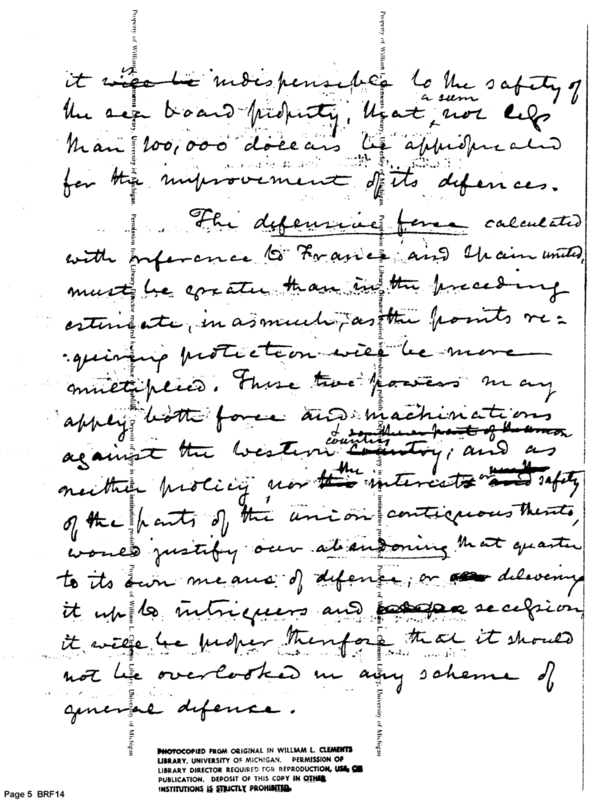 is
it will be indispensible to the safety of
a sum
the sea board property, that, not less
than 200,000 dollars be appropriated
for the improvement of its defences.
The defensive force calculated
with reference to France and Spain united,
must be greater than in the preceding
estimate, in as much, as the points re=
=quiring protection will be more
multiplied. These two powers may
apply both force and machinations
& southern part of the union
counties
against the western country; and as
the or
neither policy, nor this interests and safety
of the parts of the union contiguous thereto,
would justify our abandoning that quarter
to its own means of defence, or delivering
it up to intriguers and secession,
it will be proper therefore that it should
not be overlooked in any scheme of
general defence.
Property of William L. Clements Library, University of Michigan. Permission from Library Director required to reproduce or publish. Deposit of this copy in other institutions prohibited.
PHOTOCOPIED FROM ORIGINAL IN WILLIAM L. CLEMENTS
LIBRARY, UNIVERSITY OF MICHIGAN. PERMISSION OF
LIBRARY DIRECTOR REQUIRED FOR REPRODUCTION, USE, OR
PUBLICATION. DEPOSIT OF THIS COPY IN OTHER
INSTITUTIONS IS STRICTLY PROHIBITED.
Page 5 BRF14